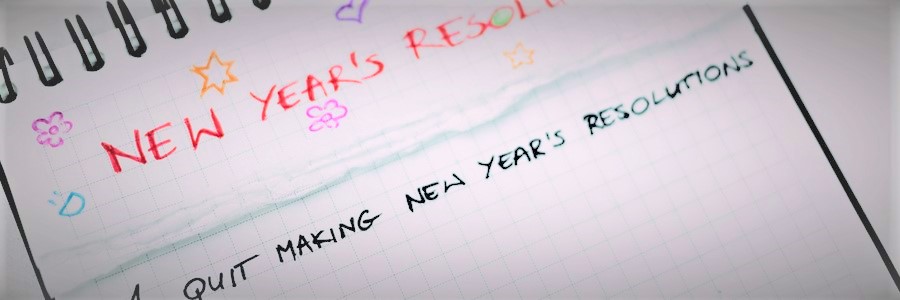 NEW YEAR'S RESOLU
:D
1 QUIT MAKING NEW YEAR'S RESOLUTIONS